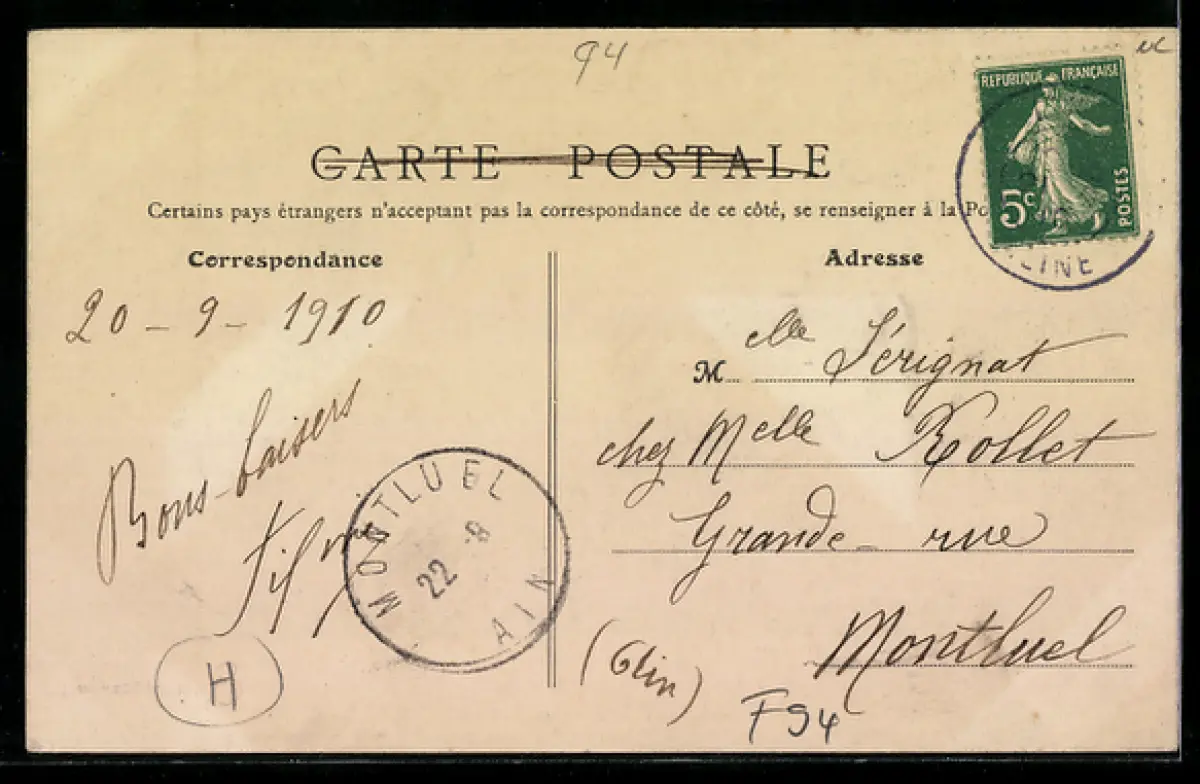 94
REPUBLIQUE FRANÇAISE
5c
POSTES
CARTE POSTALE
Certains pays étrangers n'acceptant pas la correspondance de ce côté, se renseigner à la Po
Correspondance
Adresse
20 - 9 - 1910
Bons baisers
Melle Sérignat
chez Melle Rollet
Grande rue
Montluel
MONTLUEL
22 - 9
AIN
SEINE
H
F94